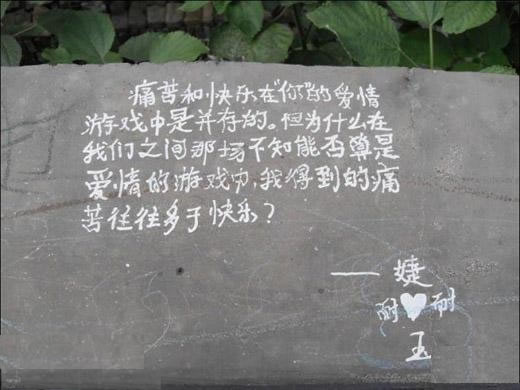 痛苦和快乐在“你”的爱情
游戏中是并存的。但为什么在
我们之间那场不知能否算是
爱情的游戏中,我得到的痛
苦往往多于快乐?
—— 婕
耐♥耐
玉